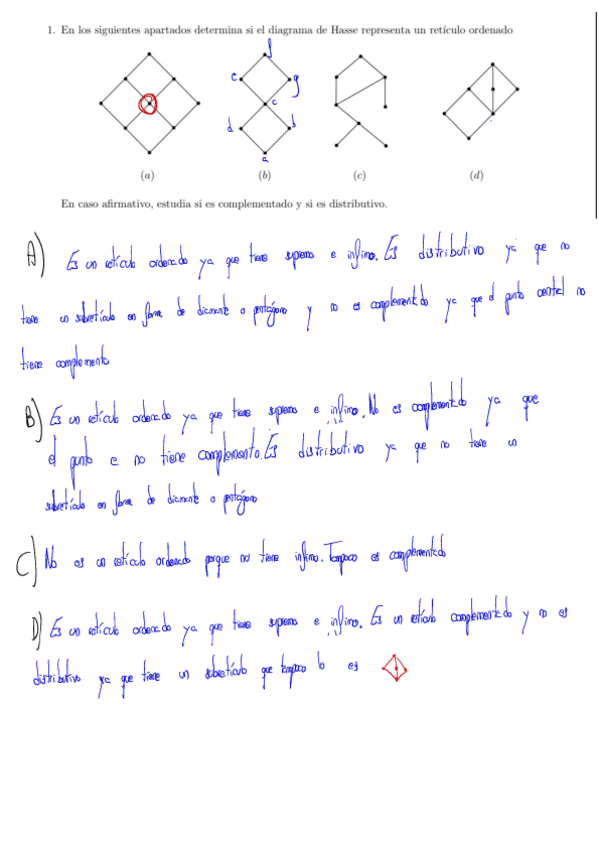 1. En los siguientes apartados determina si el diagrama de Hasse representa un retículo ordenado
f
e
g
c
d
b
a
(a) (b) (c) (d)
En caso afirmativo, estudia si es complementado y si es distributivo.
A) Es un retículo ordenado ya que tiene supremo e infimo. Es distributivo ya que no
tiene un subretículo en forma de diamante o pentágono y no es complementado ya que el punto central no
tiene complemento
B) Es un retículo ordenado ya que tiene supremo e infimo. No es complementado ya que
el punto c no tiene complemento. Es distributivo ya que no tiene un
subretículo en forma de diamante o pentágono
C) No es un retículo ordenado porque no tiene infimo. Tampoco es complementado
D) Es un retículo ordenado ya que tiene supremo e infimo. Es un retículo complementado y no es
distributivo ya que tiene un subretículo que tampoco lo es